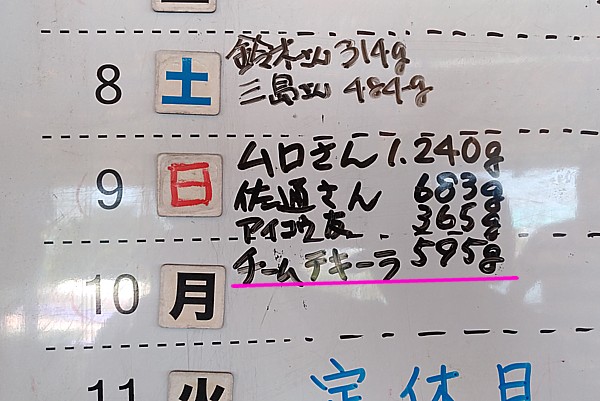 土
鈴木さん 314g
8
三島さん 484g
ムロさん 1.240g
9 日
佐通さん 683g
アイコウ友 365g
チームテキーラ 595g
10 月
11 火 定休日